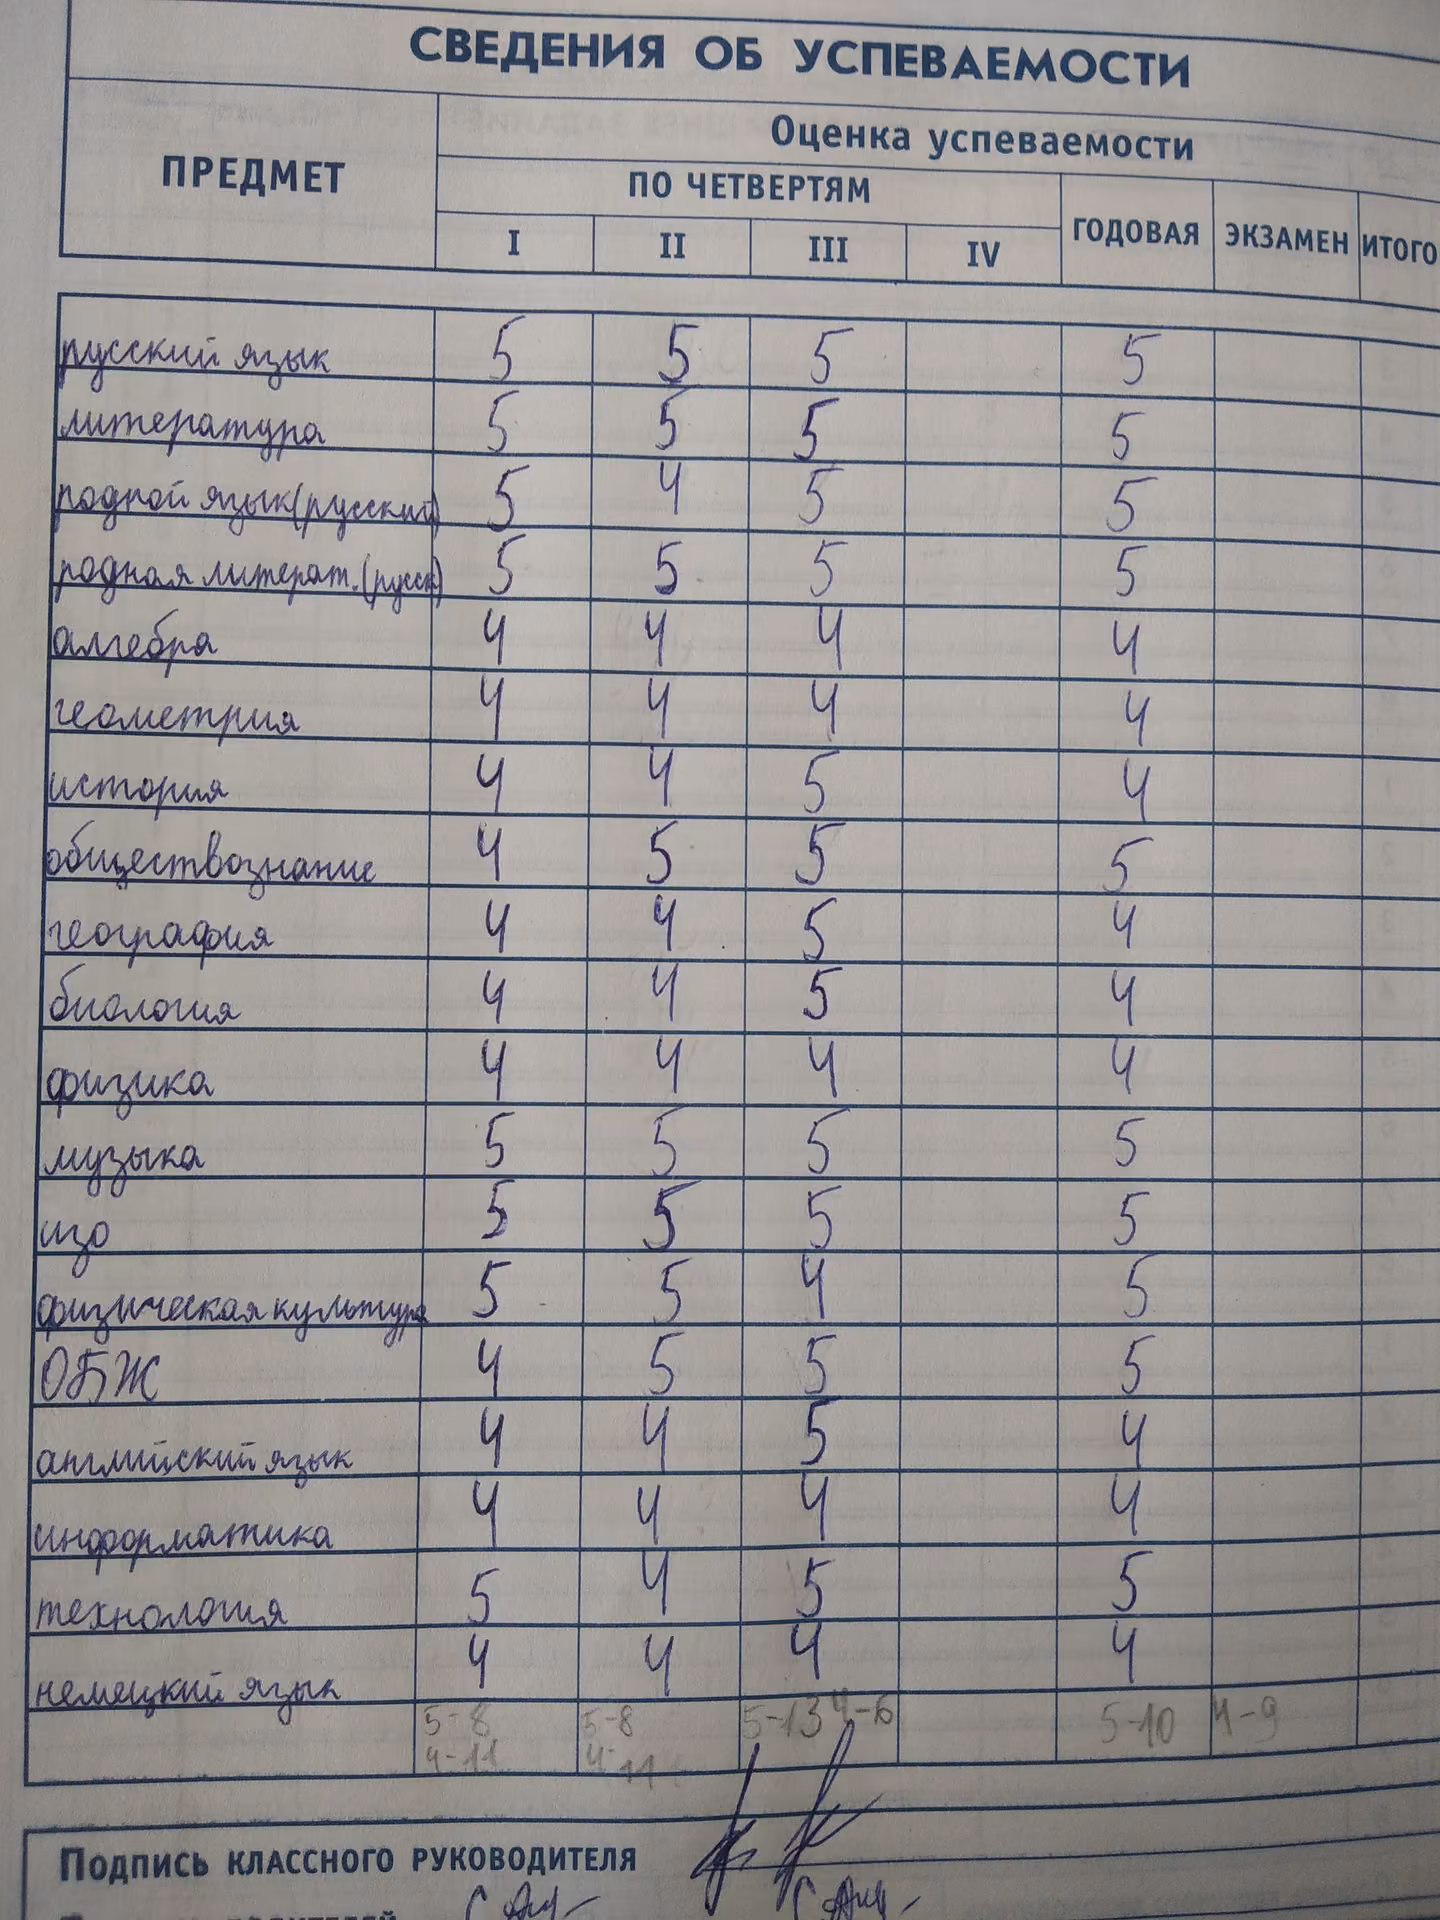 СВЕДЕНИЯ ОБ УСПЕВАЕМОСТИ
ПРЕДМЕТ Оценка успеваемости
ПО ЧЕТВЕРТЯМ ГОДОВАЯ ЭКЗАМЕН ИТОГО
I II III IV
русский язык 5 5 5 5
литература 5 5 5 5
родной язык(русский) 5 4 5 5
родная литерат.(русск) 5 5 5 5
алгебра 4 4 4 4
геометрия 4 4 4 4
история 4 4 5 4
обществознание 4 5 5 5
география 4 4 5 4
биология 4 4 5 4
физика 4 4 4 4
музыка 5 5 5 5
изо 5 5 5 5
физическая культура 5 5 4 5
ОБЖ 4 5 5 5
английский язык 4 4 5 4
информатика 4 4 4 4
технология 5 4 5 5
немецкий язык 4 4 4 4
5-8 5-8 5-13 4-6 5-10 4-9
4-11 4-11
Подпись классного руководителя